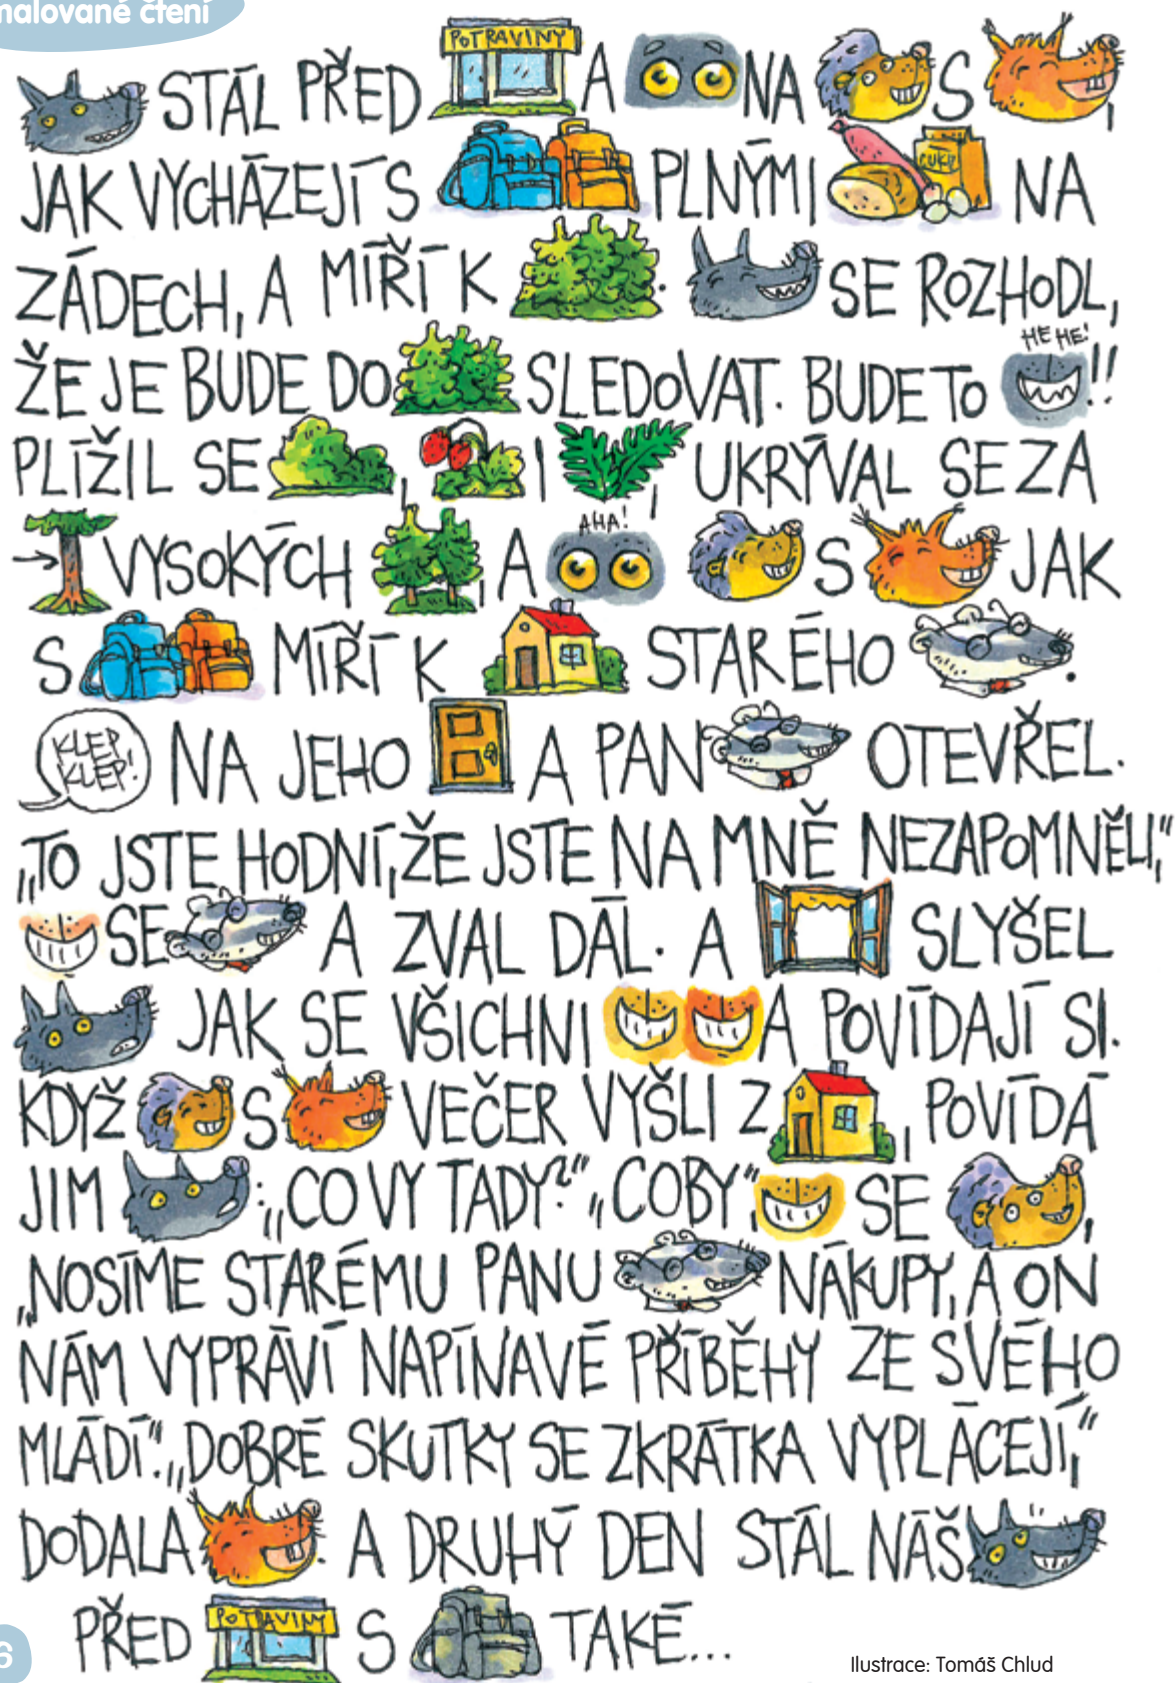 malované čtení
POTRAVINY
STÁL PŘED A NA S ,
JAK VYCHÁZEJÍ S PLNÝMI CUKR NA
ZÁDECH, A MÍŘÍ K . SE ROZHODL,
HE HE!
ŽE JE BUDE DO SLEDOVAT. BUDE TO !!
PLÍŽIL SE , I , UKRÝVAL SE ZA
AHA!
VYSOKÝCH , A S JAK
S MÍŘÍ K STARÉHO .
KLEP
KLEP! NA JEHO A PAN OTEVŘEL.
„TO JSTE HODNÍ, ŽE JSTE NA MNĚ NEZAPOMNĚLI,“
SE A ZVAL DÁL. A SLYŠEL
JAK SE VŠICHNI A POVÍDAJÍ SI.
KDYŽ S VEČER VYŠLI Z , POVÍDÁ
JIM : „CO VY TADY?“ „COBY“, SE ,
„NOSÍME STARÉMU PANU NÁKUPY, A ON
NÁM VYPRÁVÍ NAPÍNAVÉ PŘÍBĚHY ZE SVÉHO
MLÁDÍ“. „DOBRÉ SKUTKY SE ZKRÁTKA VYPLÁCEJÍ,“
DODALA . A DRUHÝ DEN STÁL NÁŠ
PŘED POTRAVINY S TAKÉ...
6
Ilustrace: Tomáš Chlud